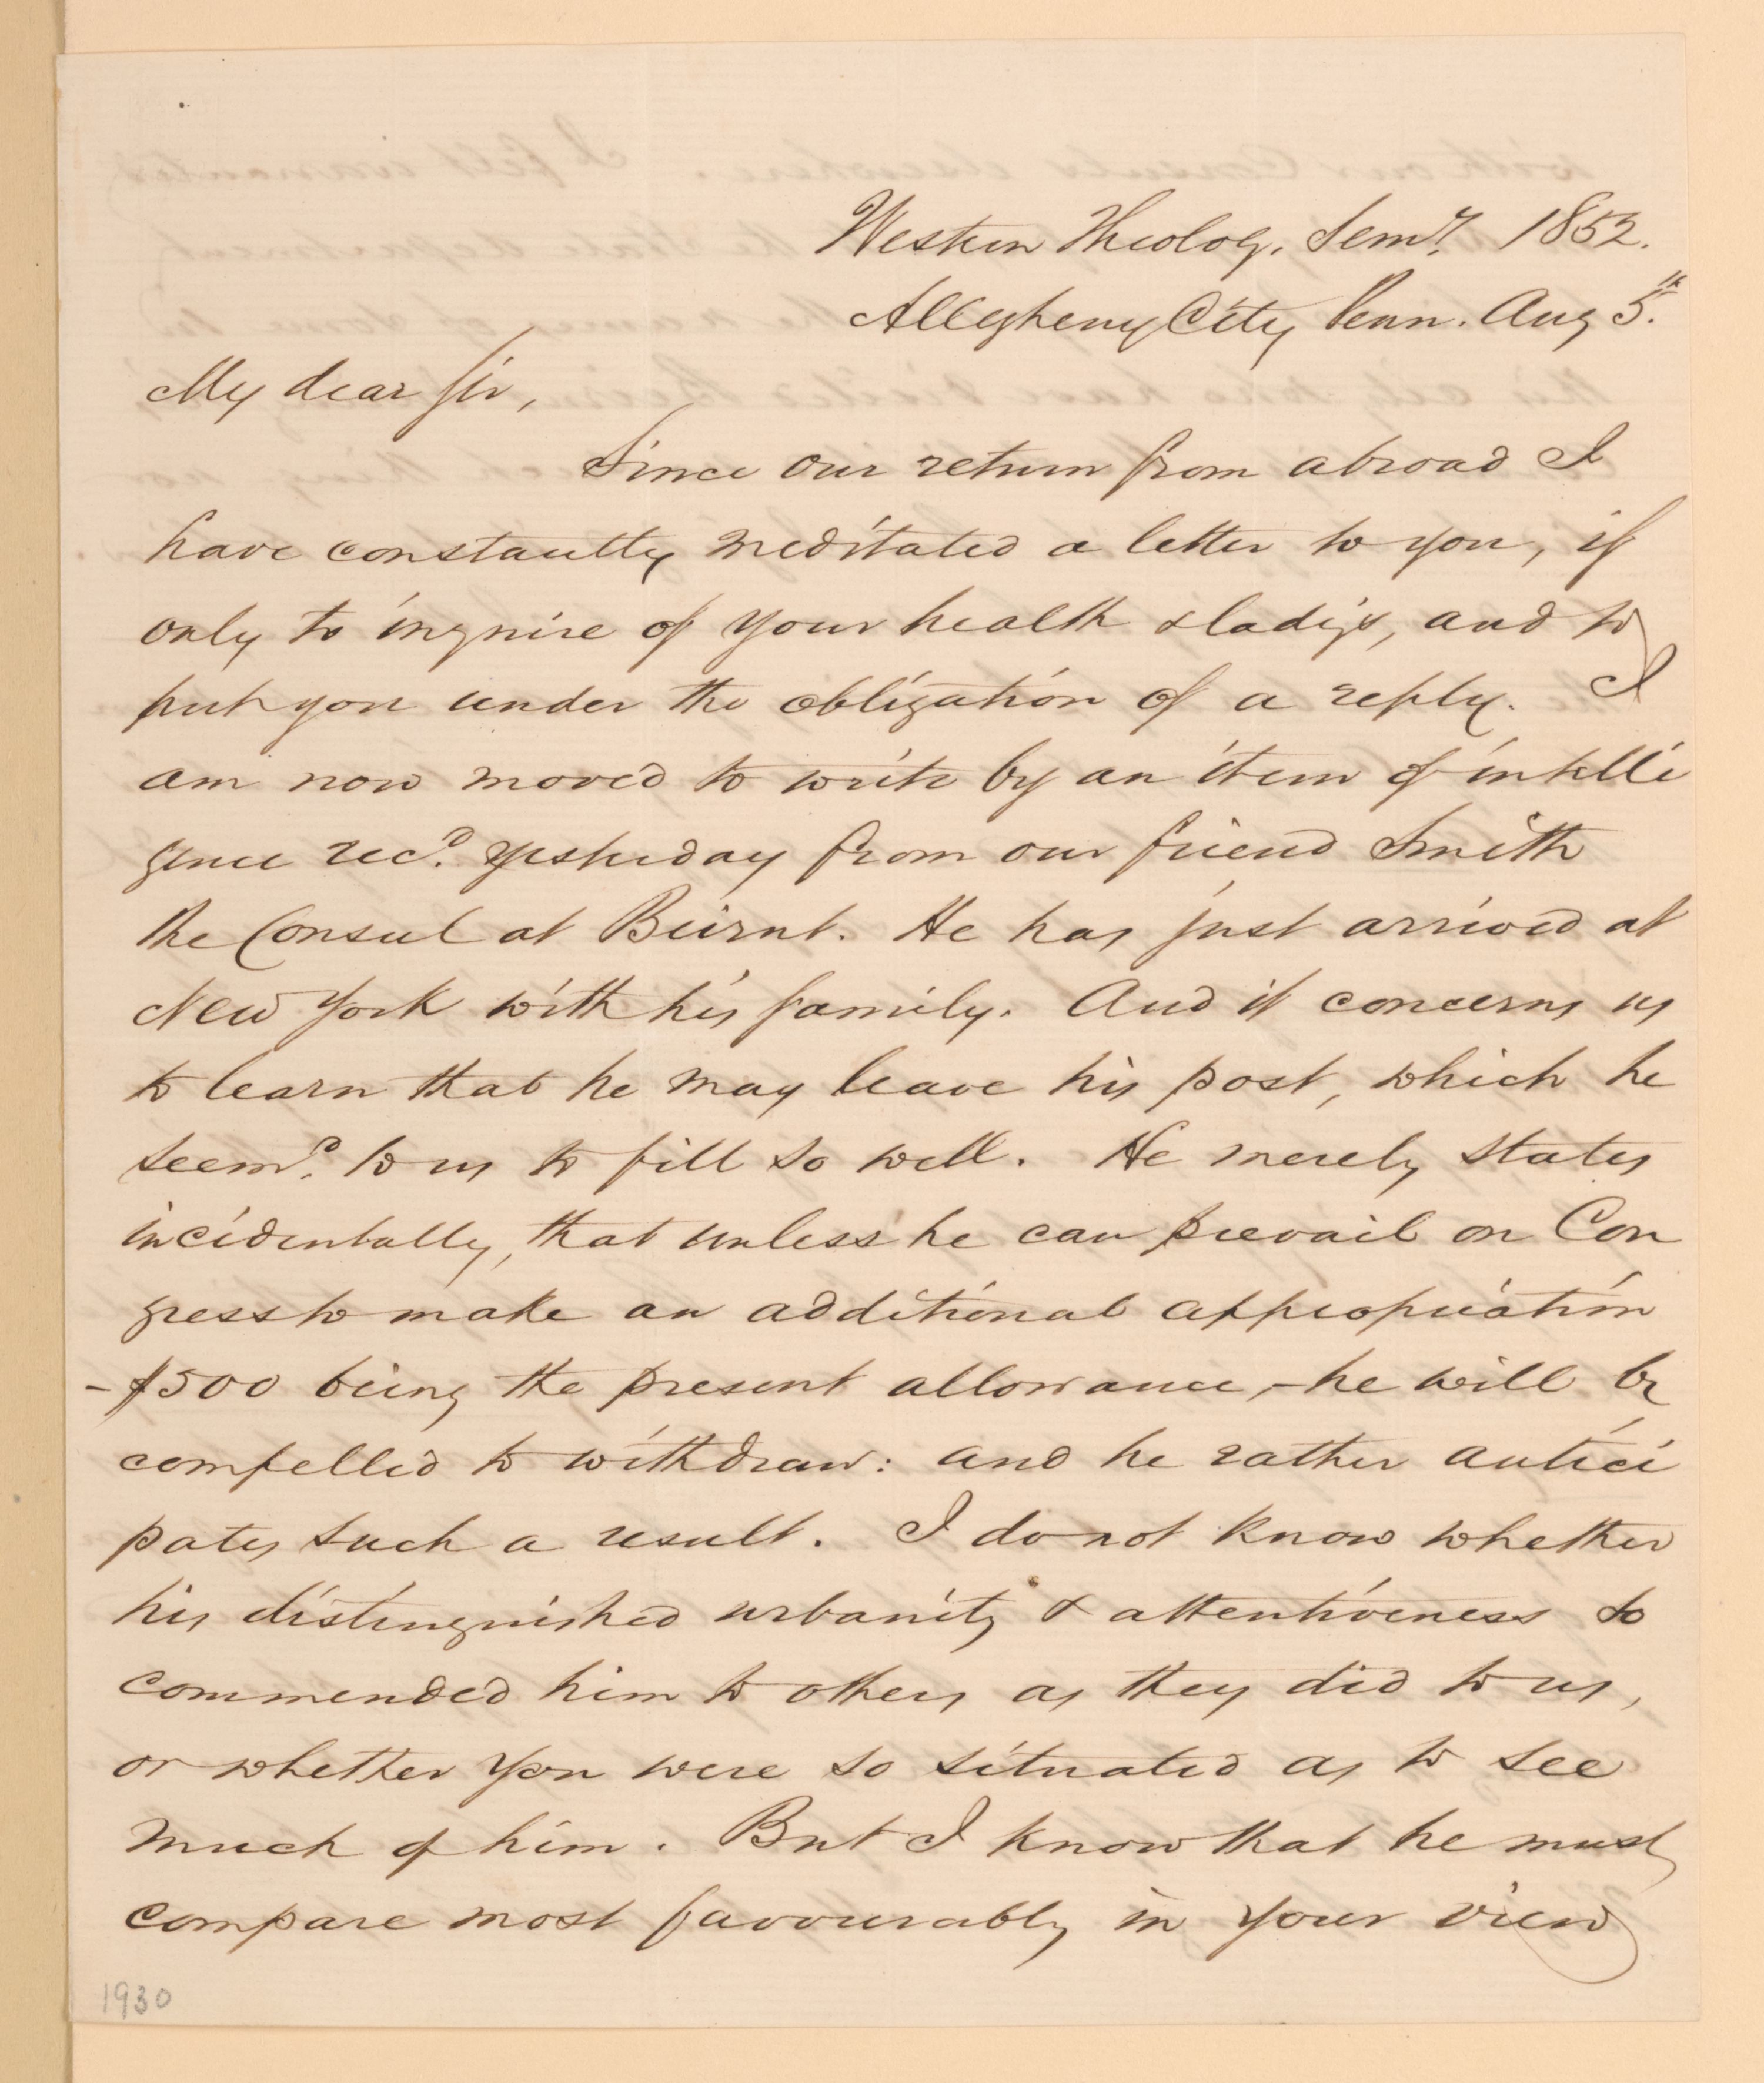 Western Theolog. Semy. 1852.
Allegheny City, Penn. Aug 5th.
My dear Sir,
Since our return from abroad I
have constantly meditated a letter to you, if
only to inquire of your health & lady's, and to
put you under the obligation of a reply. I
am now moved to write by an item of intelli
gence recd. yesterday from our friend Smith
the Consul at Beirut. He has just arrived at
New York with his family. And it concerns us
to learn that he may leave his post, which he
seemd. to us to fill so well. He merely states
incidentally, that unless he can prevail on Con
gress to make an additional appropriation
- $500 being the present allowance, - he will be
compelled to withdraw: and he rather antici
pates such a result. I do not know whether
his distinguished urbanity & attentiveness so
commended him to others as they did to us,
or whether you were so situated as to see
much of him. But I know that he must
compare most favourably in your view
1930